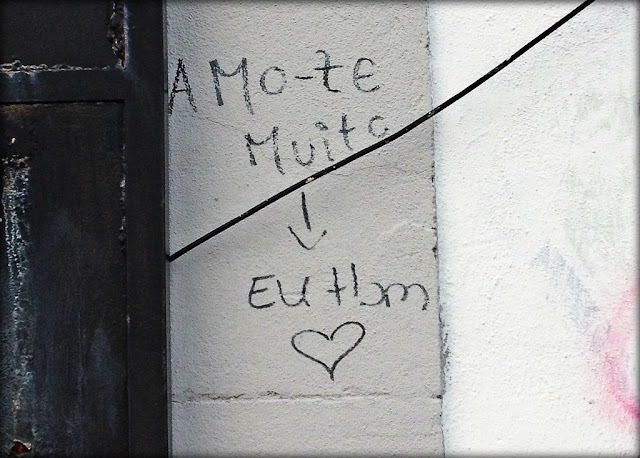 AMO-TE
MUITO
EU tbm